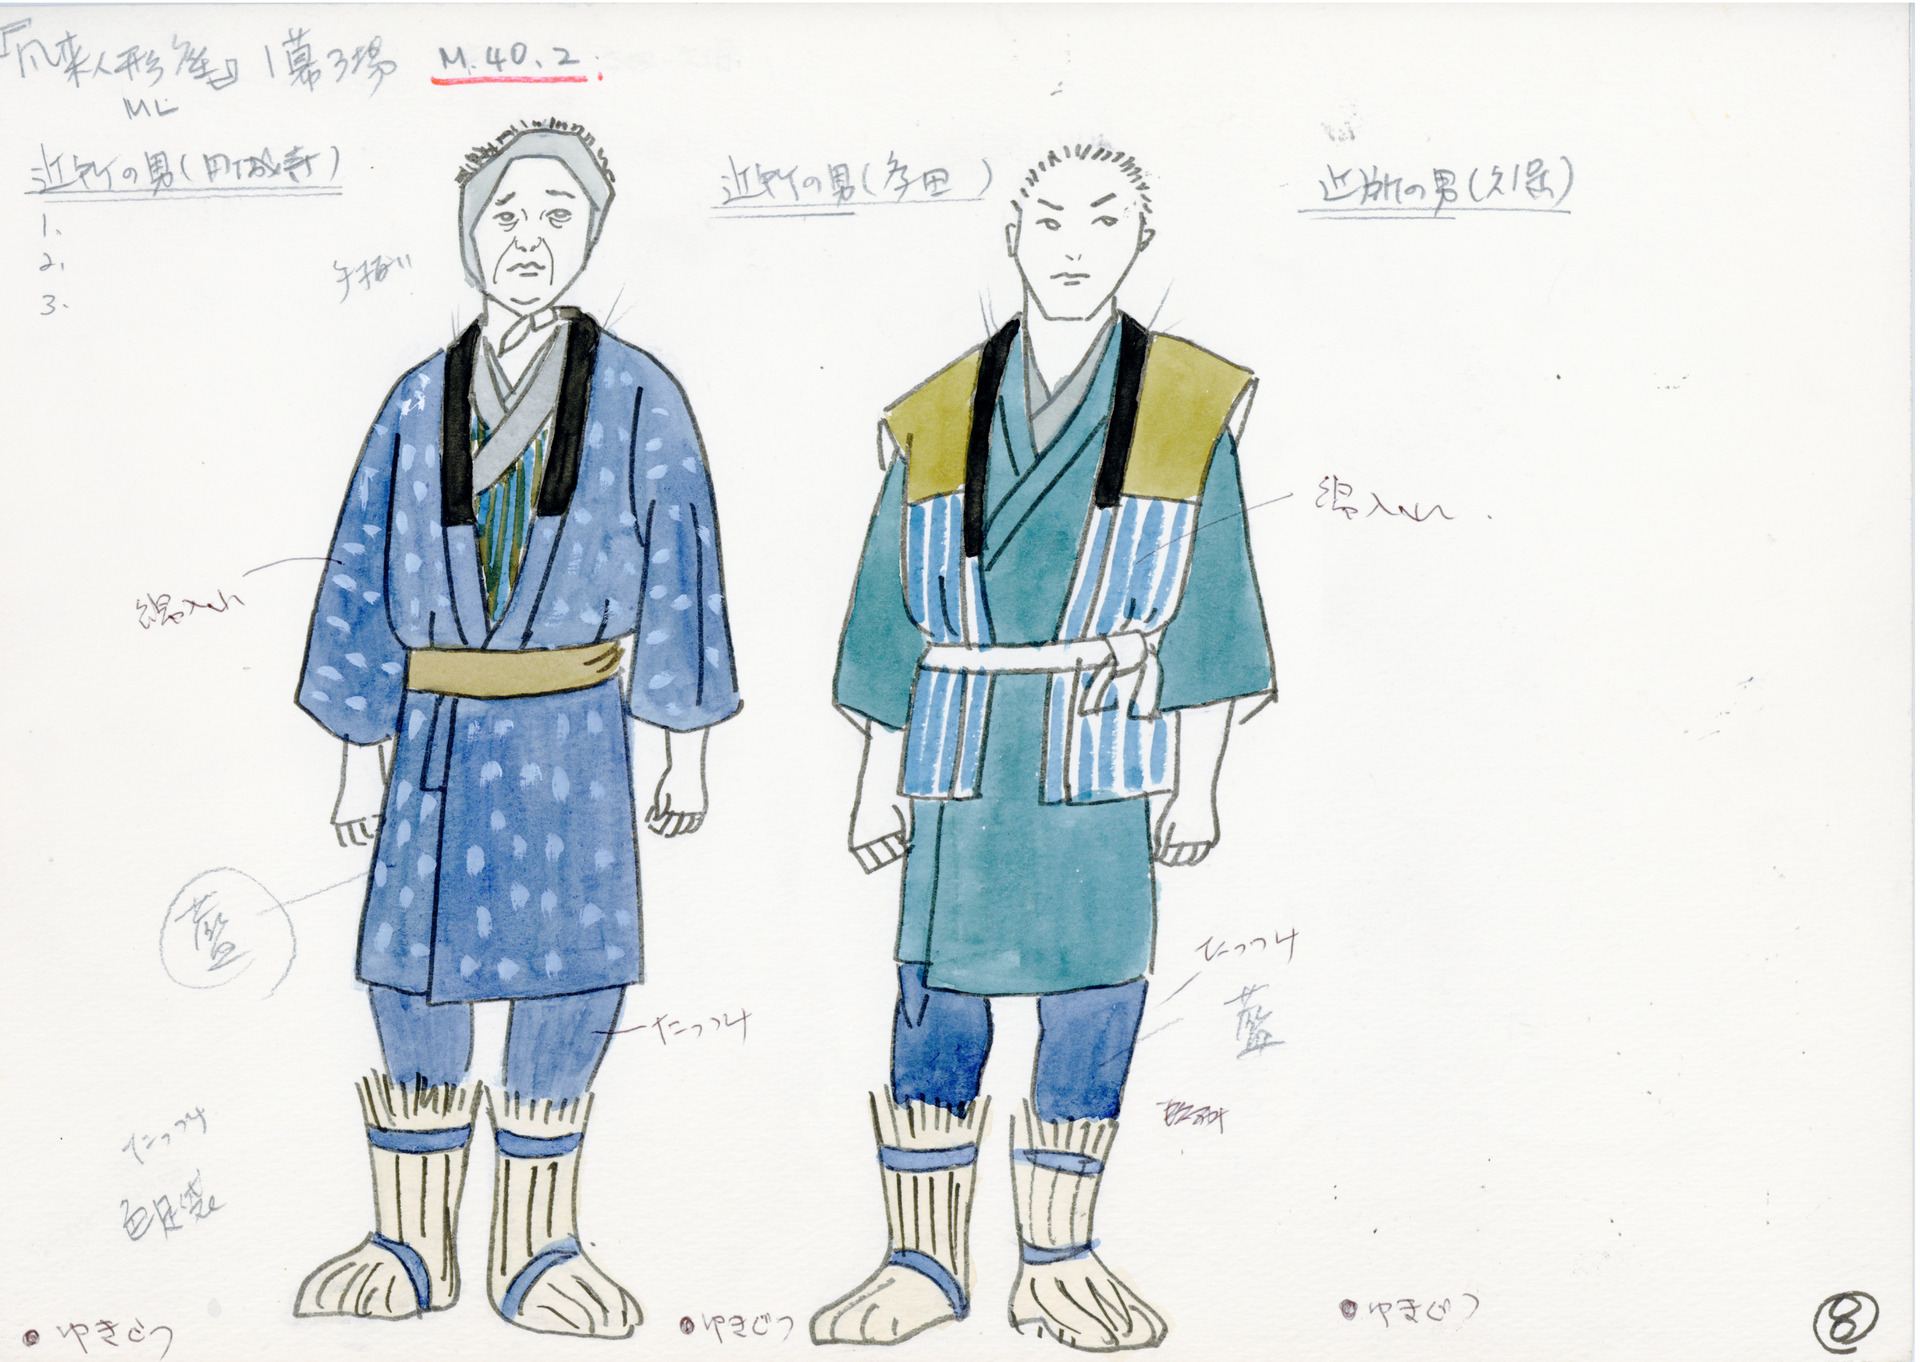 『風来人形座』1幕3場 M.40.2.
ML
近所の男(円城寺)
1.
2.
3.
手拭い
近所の男(孝田)
近所の男(久保)
綿入れ
綿入れ
藍
たっつけ
たっつけ
藍
たっつけ
色足袋
●ゆきぐつ
●ゆきぐつ
●ゆきぐつ
8